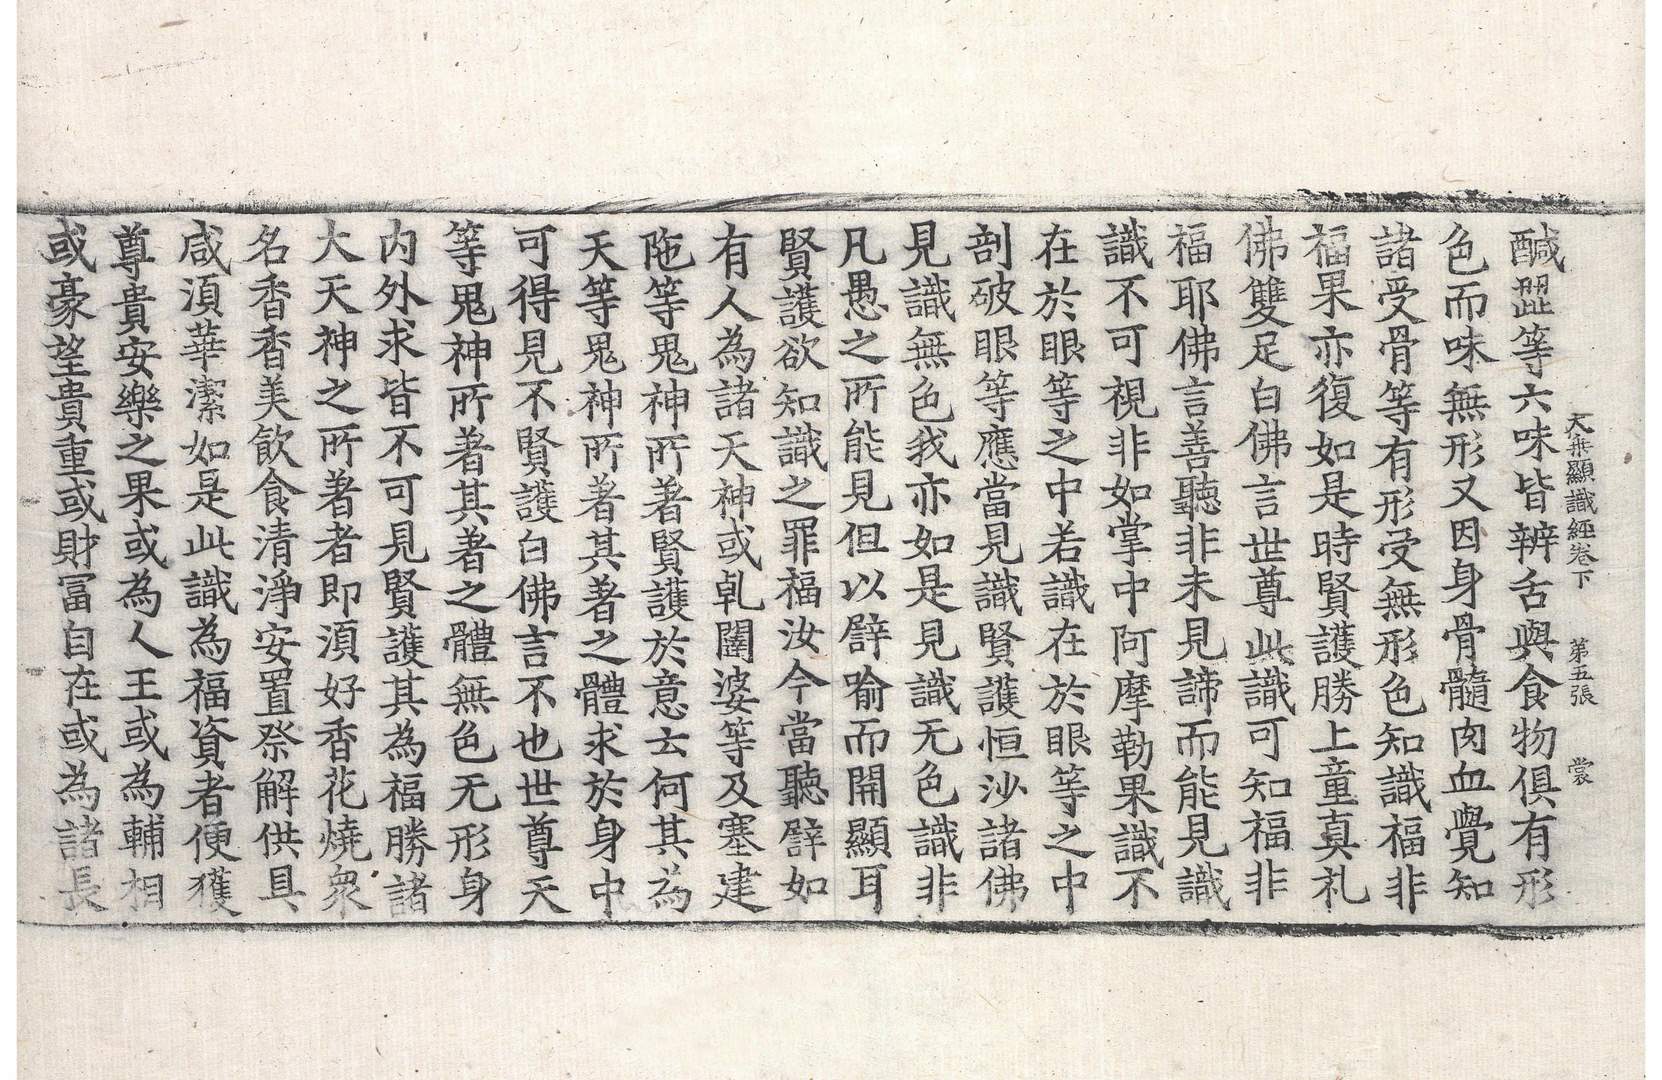 大乗顯識經卷下　第五張　裳
醎澀等六味皆辨舌與食物俱有形
色而味無形又因身骨髓肉血覺知
諸受骨等有形受無形色知識福非
福果亦復如是時賢護勝上童真礼
佛雙足白佛言世尊此識可知福非
福耶佛言善聽非未見諦而能見識
識不可視非如掌中阿摩勒果識不
在於眼等之中若識在於眼等之中
剖破眼等應當見識賢護恒沙諸佛
見識無色我亦如是見識无色識非
凡愚之所能見但以譬喻而開顯耳
賢護欲知識之罪福汝今當聽譬如
有人為諸天神或乹闥婆等及塞建
陁等鬼神所著賢護於意云何其為
天等鬼神所著其著之體求於身中
可得見不賢護白佛言不也世尊天
等鬼神所著其著之體無色无形身
内外求皆不可見賢護其為福勝諸
大天神之所著者即須好香花燒衆
名香香美飲食清淨安置祭解供具
咸須華潔如是此識為福資者便獲
尊貴安樂之果或為人王或為輔相
或豪望貴重或財冨自在或為諸長